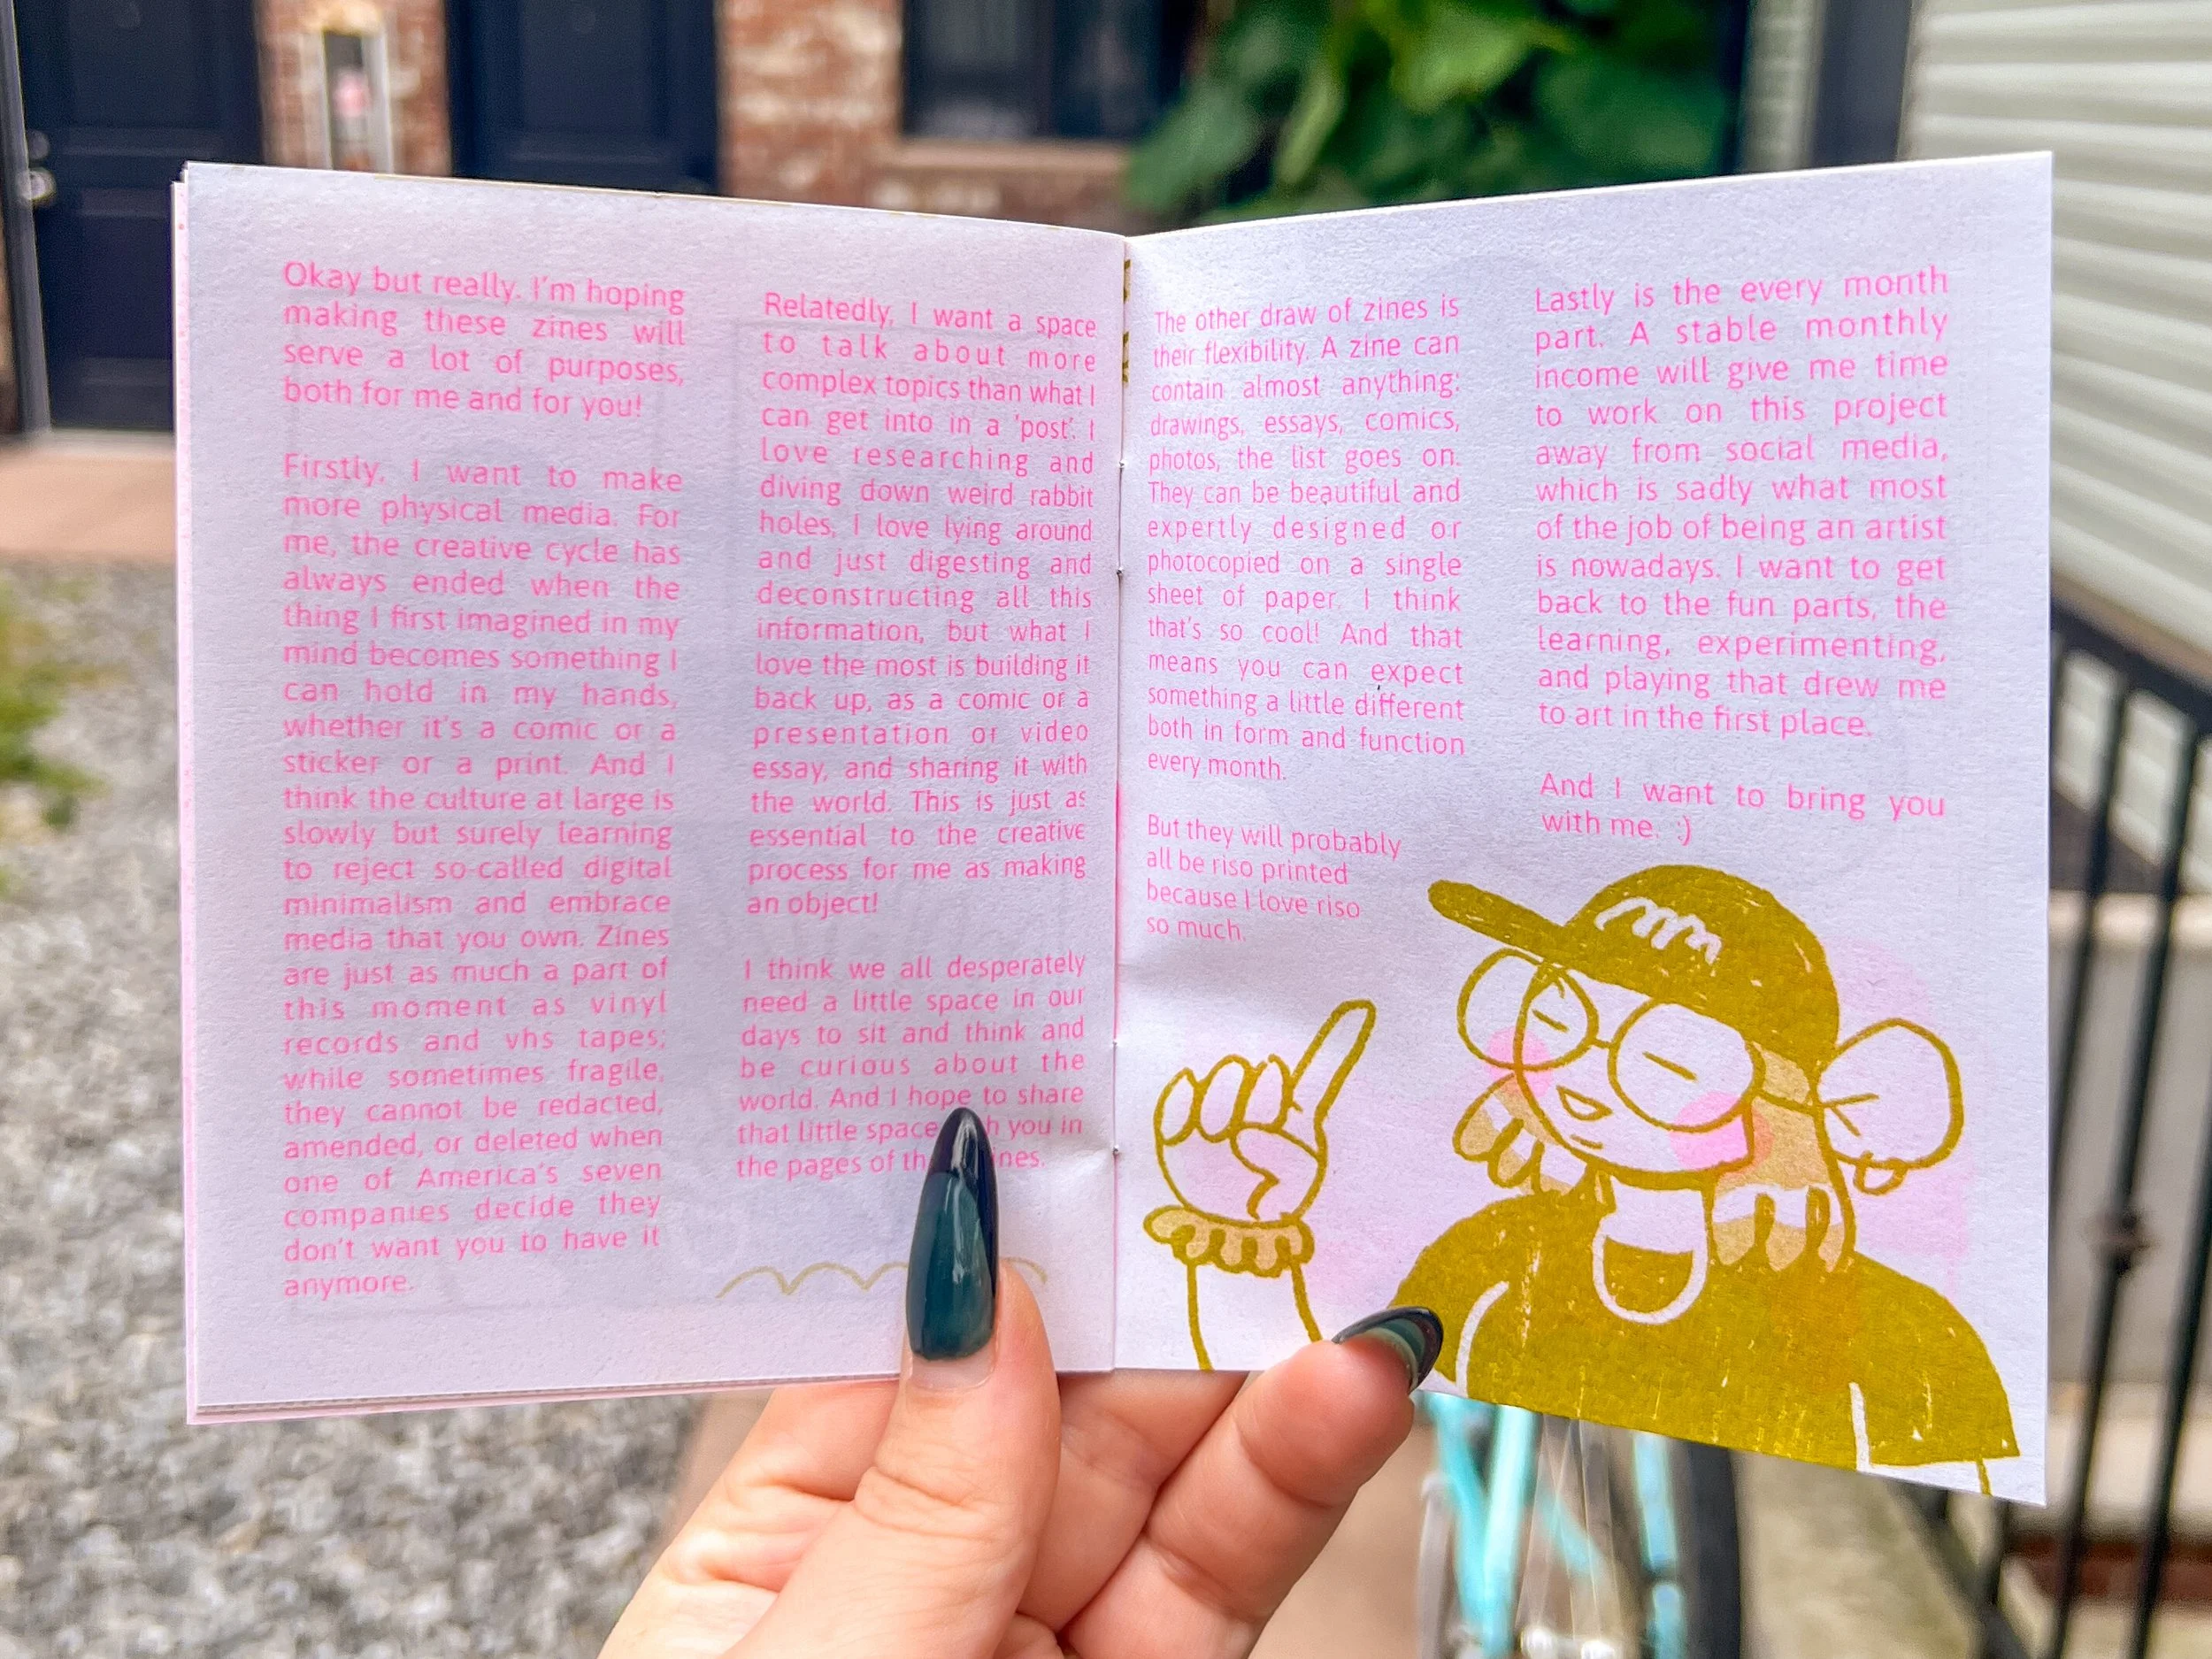 Okay but really. I'm hoping
making these zines will
serve a lot of purposes,
both for me and for you!
Firstly, I want to make
more physical media. For
me, the creative cycle has
always ended when the
thing I first imagined in my
mind becomes something I
can hold in my hands,
whether it's a comic or a
sticker or a print. And I
think the culture at large is
slowly but surely learning
to reject so-called digital
minimalism and embrace
media that you own. Zines
are just as much a part of
this moment as vinyl
records and vhs tapes;
while sometimes fragile,
they cannot be redacted,
amended, or deleted when
one of America's seven
companies decide they
don't want you to have it
anymore.
Relatedly, I want a space
to talk about more
complex topics than what I
can get into in a 'post'. I
love researching and
diving down weird rabbit
holes, I love lying around
and just digesting and
deconstructing all this
information, but what I
love the most is building it
back up, as a comic or a
presentation or video
essay, and sharing it with
the world. This is just as
essential to the creative
process for me as making
an object!
I think we all desperately
need a little space in our
days to sit and think and
be curious about the
world. And I hope to share
that little space you in
the pages of
The other draw of zines is
their flexibility. A zine can
contain almost anything:
drawings, essays, comics,
photos, the list goes on.
They can be beautiful and
expertly designed or
photocopied on a single
sheet of paper. I think
that's so cool! And that
means you can expect
something a little different
both in form and function
every month.
But they will probably
all be riso printed
because I love riso
so much.
Lastly is the every month
part. A stable monthly
income will give me time
to work on this project
away from social media,
which is sadly what most
of the job of being an artist
is nowadays. I want to get
back to the fun parts, the
learning, experimenting,
and playing that drew me
to art in the first place.
And I want to bring you
with me. :)